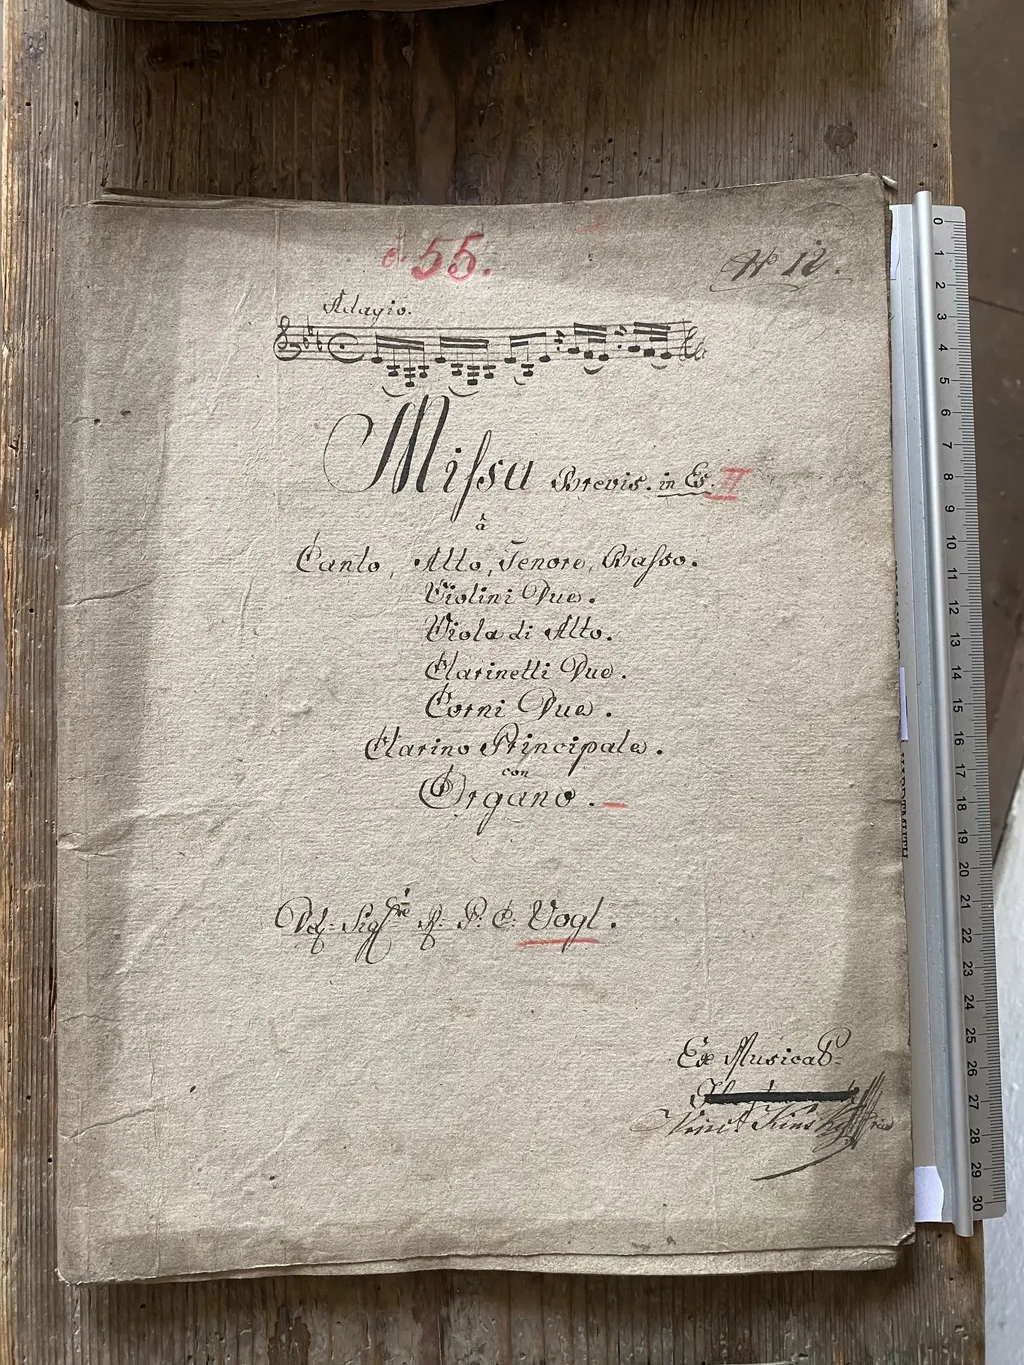 55.
No 12.
Adagio.
Missa Brevis. in Es. II
à
Canto, Alto, Tenore, Basso.
Violini Due.
Viola di Alto.
Clarinetti Due.
Corni Due.
Clarino Principale.
con
Organo.
Del: Sigre R: P: C: Vogl.
Ex Musica P:
0
1
2
3
4
5
6
7
8
9
10
11
12
13
14
15
16
17
18
19
20
21
22
23
24
25
26
27
28
29
30
HARDTMUTH